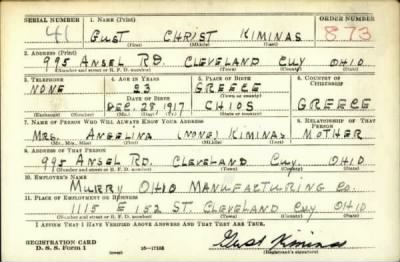 SERIAL NUMBER 1. NAME (Print) ORDER NUMBER
41 GUST CHRIST KIMINAS 873
(First) (Middle) (Last)
2. ADDRESS (Print)
995 ANSEL RD. CLEVELAND CUY OHIO
(Number and street or R. F. D. number) (Town) (County) (State)
3. TELEPHONE 4. AGE IN YEARS 5. PLACE OF BIRTH 6. COUNTRY OF CITIZENSHIP
NONE 23 GREECE
DATE OF BIRTH (Town or county)
DEC. 28 1917 CHIOS GREECE
(Exchange) (Number) (Mo.) (Day) (Yr.) (State or country)
7. NAME OF PERSON WHO WILL ALWAYS KNOW YOUR ADDRESS 8. RELATIONSHIP OF THAT PERSON
MRS. ANGELINA (NONE) KIMINAS MOTHER
(Mr., Mrs., Miss) (First) (Middle) (Last)
9. ADDRESS OF THAT PERSON
995 ANSEL RD. CLEVELAND CUY. OHIO
(Number and street or R. F. D. number) (Town) (County) (State)
10. EMPLOYER'S NAME
MURRY OHIO MANUFACTURING CO.
11. PLACE OF EMPLOYMENT OR BUSINESS
1115 E 152 ST. CLEVELAND CUY OHIO
(Number and street or R. F. D. number) (Town) (County) (State)
I AFFIRM THAT I HAVE VERIFIED ABOVE ANSWERS AND THAT THEY ARE TRUE.
REGISTRATION CARD
D. S. S. Form 1 16-17105 Gust Kiminas
(Registrant's signature)